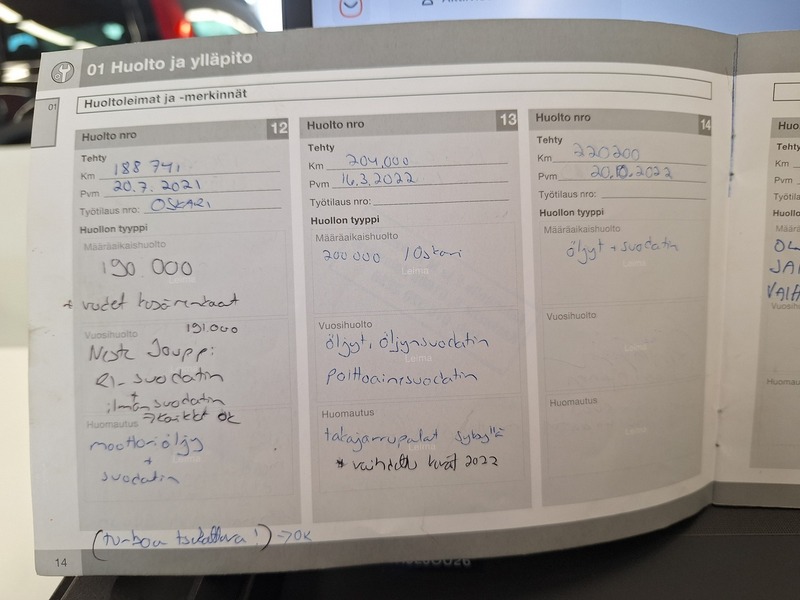 01 Huolto ja ylläpito
01
Huoltoleimat ja -merkinnät
Huolto nro 12
Tehty
Km 188 741
Pvm 20.7.2021
Työtilaus nro: OSKARI
Huollon tyyppi
Määräaikaishuolto
190.000
Leima
+ uudet kesärenkaat
Vuosihuolto 191.000
Neste Jouppi
RI- suodatin
+
ilmansuodatin
Leima
→ kaikki ok
Huomautus
moottoriöljy
Leima
+
suodatin
(turboa tsekattava!) → OK
14
Huolto nro 13
Tehty
Km 204.000
Pvm 16.3.2022
Työtilaus nro:
Huollon tyyppi
Määräaikaishuolto
200 000 / Oskari
Leima
Vuosihuolto
öljyt, öljynsuodatin
Leima
polttoainesuodatin
Huomautus
takajarrupalat syksyllä
Leima
* vaihdettu kevät 2022
Huolto nro 14
Tehty
Km 220200
Pvm 20.10.2022
Työtilaus nro:
Huollon tyyppi
Määräaikaishuolto
öljyt + suodatin
Leima
Vuosihuolto
Leima
Huomautus
Leima
Tehty
Km
Pvm